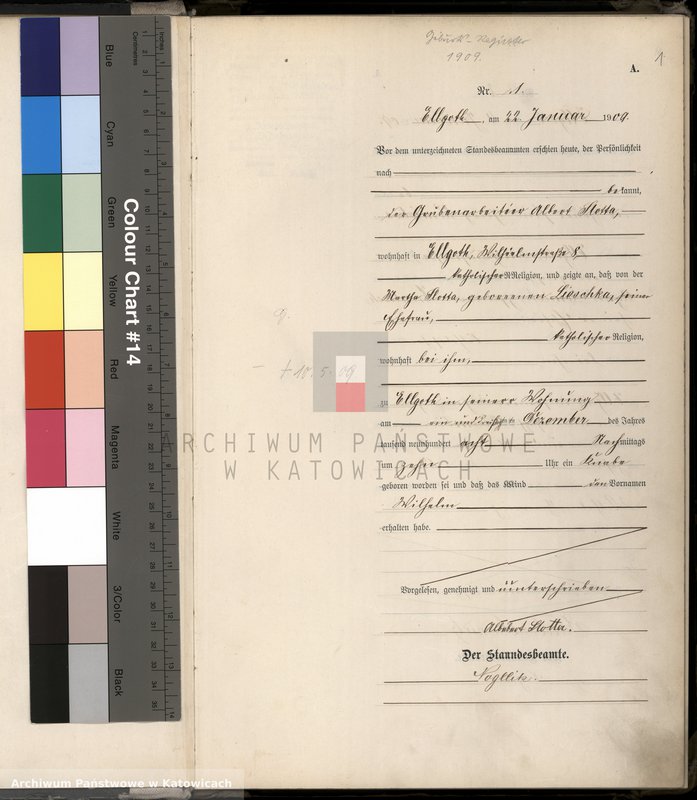 Geburts-Register
1909.
1
A.
Nr. 1.
Ellgoth, am 22 Januar 1909
Vor dem unterzeichneten Standesbeamten erschien heute, der Persönlichkeit
nach
bekannt,
der Grubenarbeiter Albert Slotta,
wohnhaft in Ellgoth, Wilhelmstraße 8,
katholischer Religion, und zeigte an, daß von der
Martha Slotta, geborenen Lieschka, seiner
Ehefrau,
katholischer Religion,
wohnhaft bei ihm,
zu Ellgoth in seiner Wohnung
am ein und Dezember des Jahres
tausend neunhundert acht Nachmittags
um zehn Uhr ein Knabe
geboren worden sei und daß das Kind den Vornamen
Wilhelm
erhalten habe.
+ 10.5.09
Vorgelesen, genehmigt und unterschrieben
Albert Slotta.
Der Standesbeamte.
ARCHIWUM PAŃSTWOWE
W KATOWICACH
Colour Chart #14
Blue
Cyan
Green
Yellow
Red
Magenta
White
3/Color
Black
Centimetres
Inches
Archiwum Państwowe w Katowicach